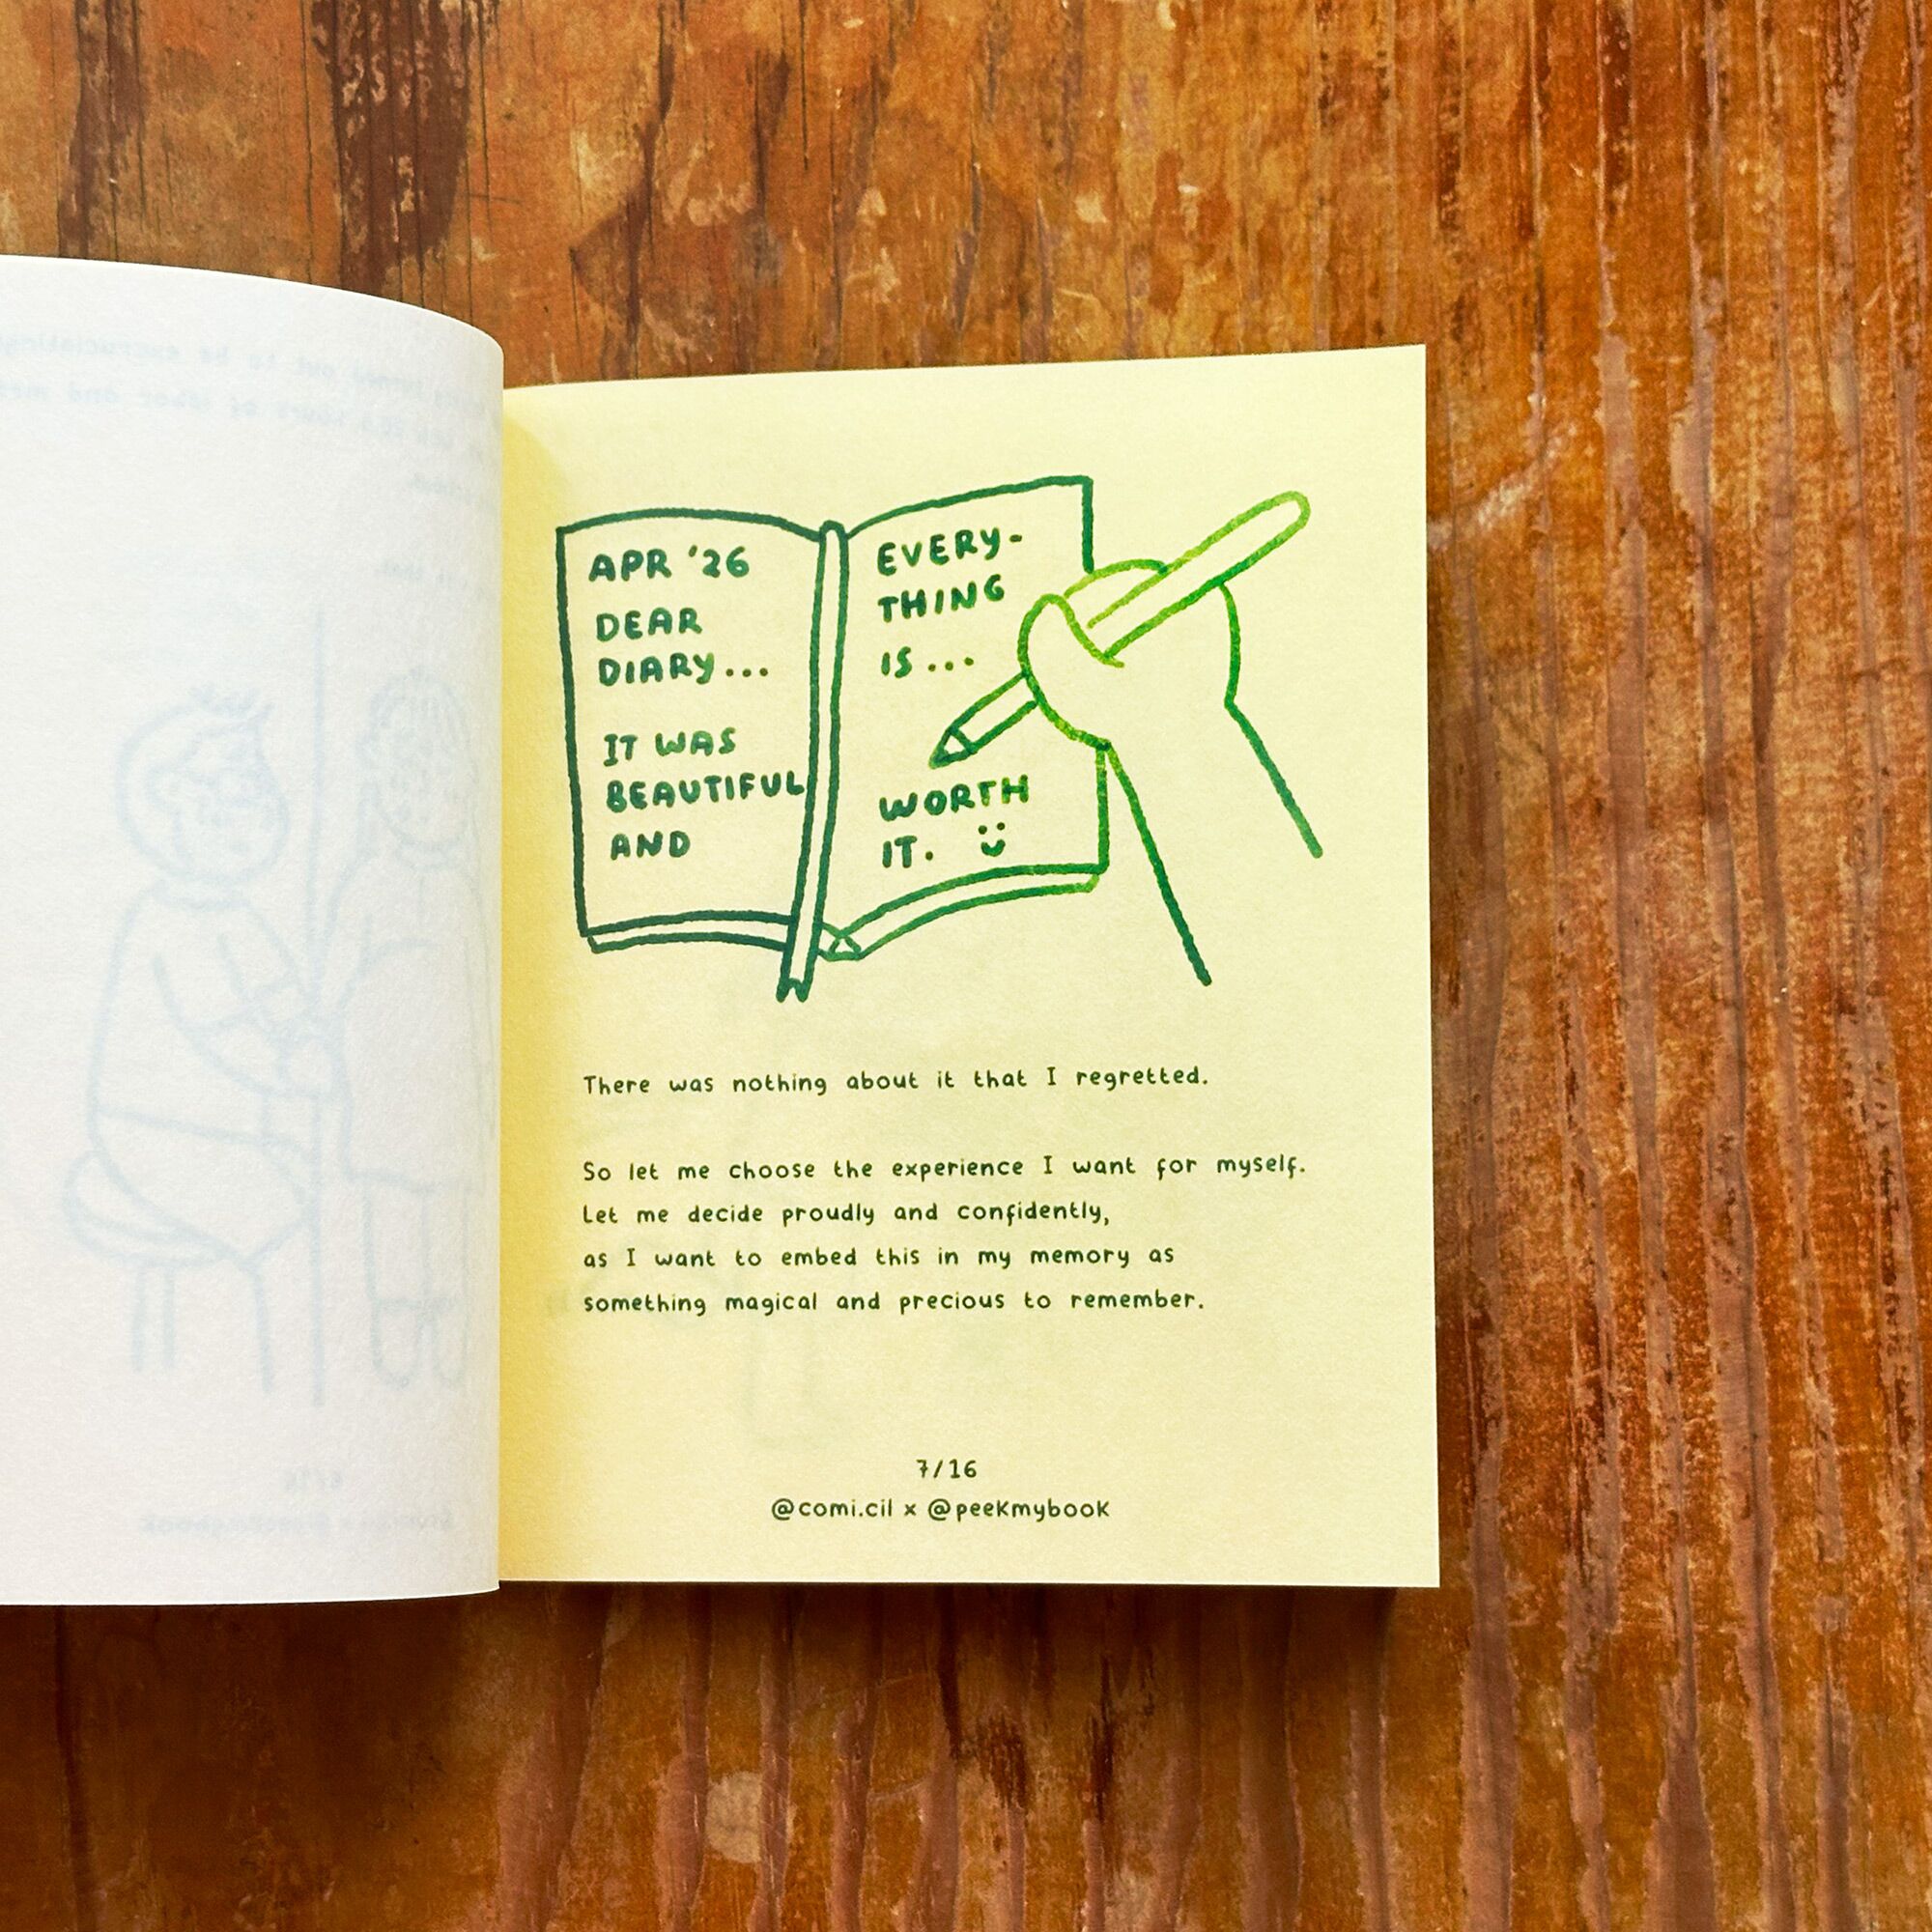 APR '26
DEAR
DIARY...
IT WAS
BEAUTIFUL
AND
EVERY-
THING
IS...
WORTH
IT.
There was nothing about it that I regretted.
So let me choose the experience I want for myself.
Let me decide proudly and confidently,
as I want to embed this in my memory as
something magical and precious to remember.
7/16
@comi.cil x @peekmybook